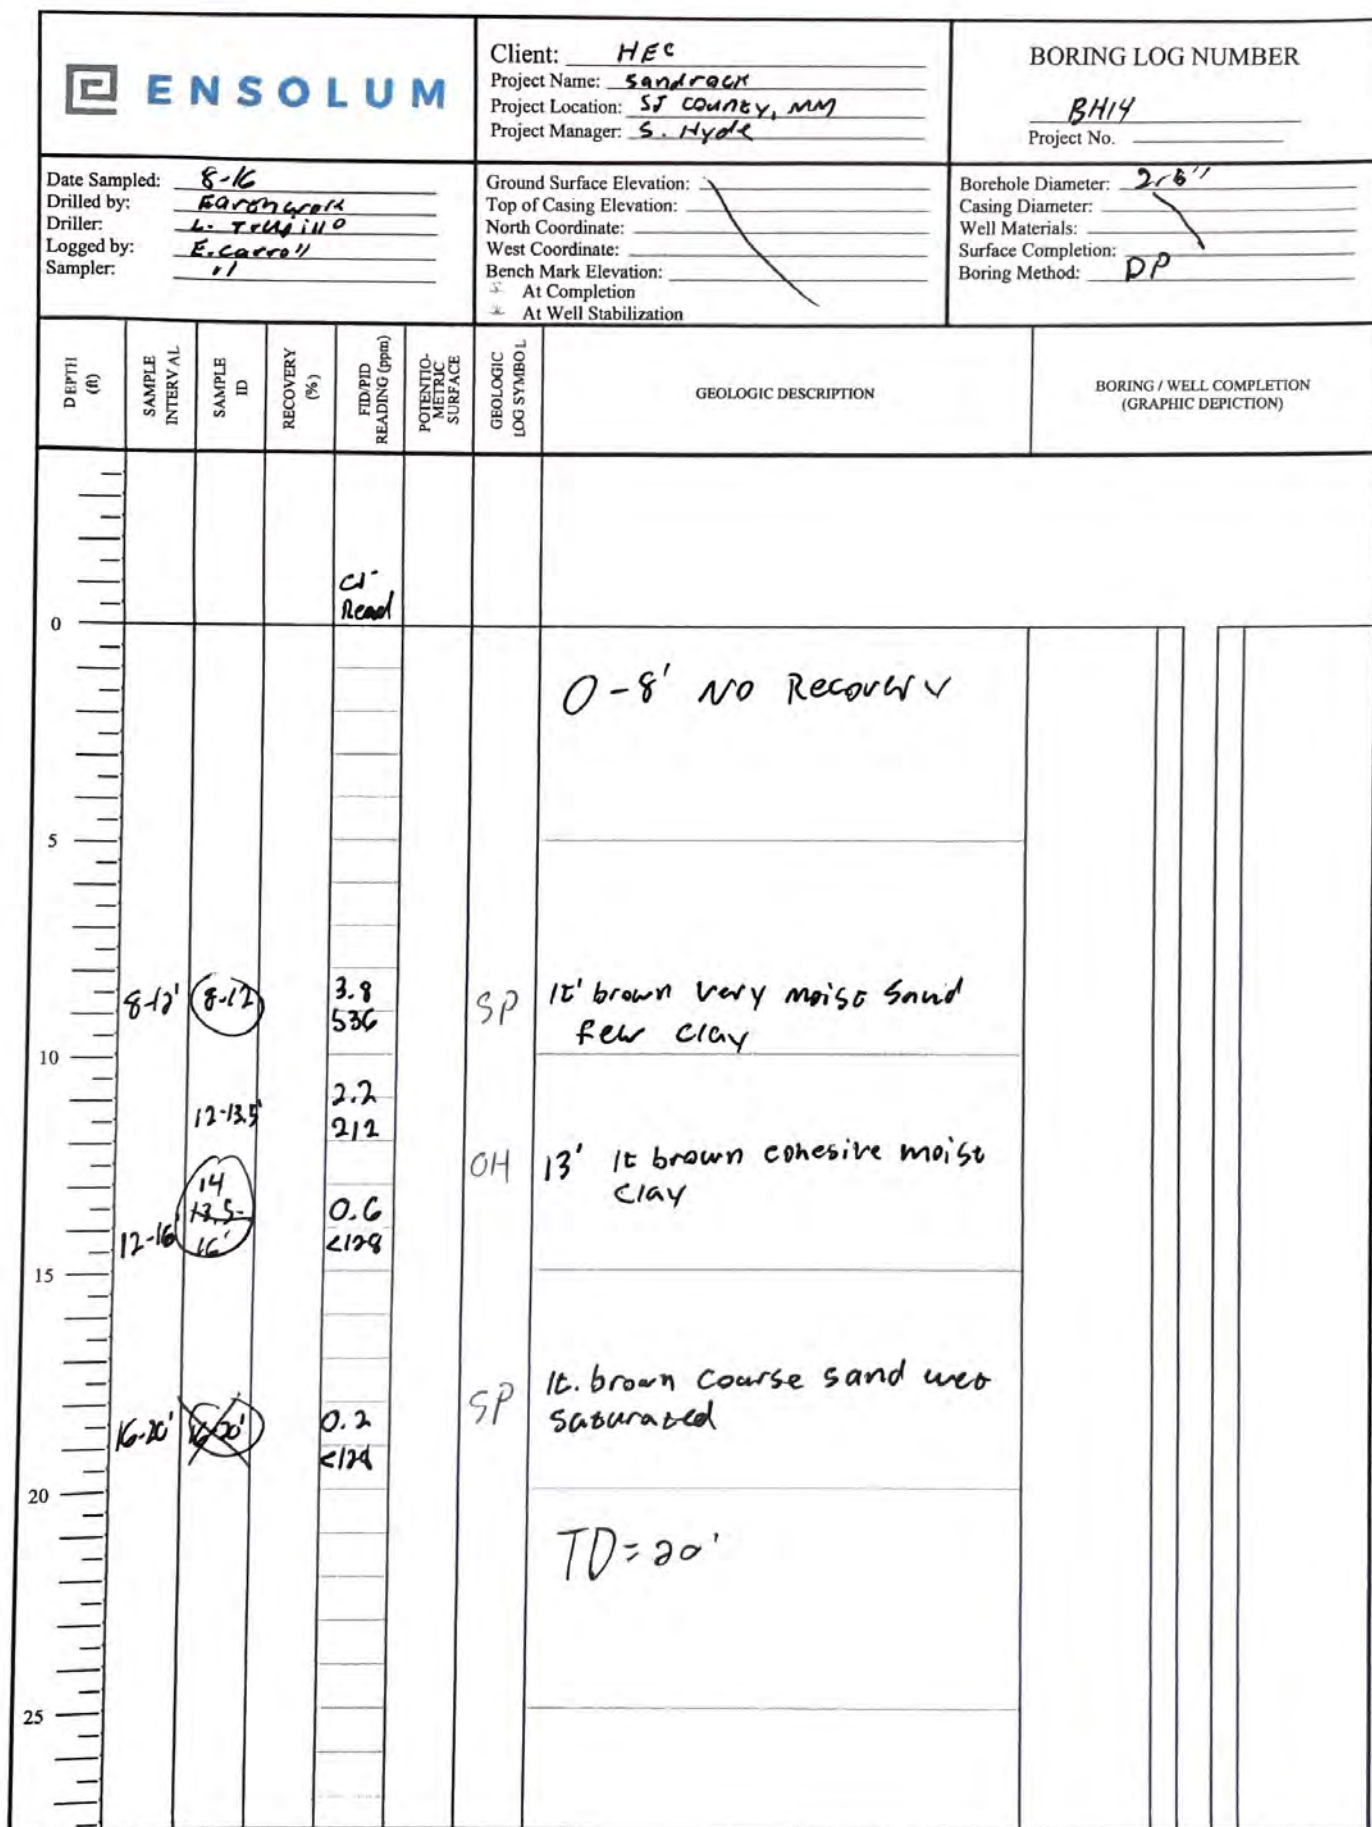 ENSOLUM
Client: HEC
Project Name: Sandrock
Project Location: SJ County, NM
Project Manager: S. Hyde
BORING LOG NUMBER
BH14
Project No.
Date Sampled: 8-16
Drilled by:
Driller: L. Trujillo
Logged by: E. Carroll
Sampler: "
Ground Surface Elevation:
Top of Casing Elevation:
North Coordinate:
West Coordinate:
Bench Mark Elevation:
At Completion
At Well Stabilization
Borehole Diameter:
Casing Diameter:
Well Materials:
Surface Completion:
Boring Method: DP
DEPTH (ft)
SAMPLE INTERVAL
SAMPLE ID
RECOVERY (%)
FID/PID READING (ppm)
POTENTIO-METRIC SURFACE
GEOLOGIC LOG SYMBOL
GEOLOGIC DESCRIPTION
BORING / WELL COMPLETION
(GRAPHIC DEPICTION)
Cl-
Read
0
0-8' NO Recovery
5
8-12' 8-12 3.8 SP lt' brown very moist Sand
536 few clay
10
2.2
12-13.5' 212
OH 13' lt brown cohesive moist
14 clay
13.5- 0.6
12-16 16' <128
15
lt. brown course sand wet
SP saturated
16-20' 16-20' 0.2
<128
20
TD=20'
25